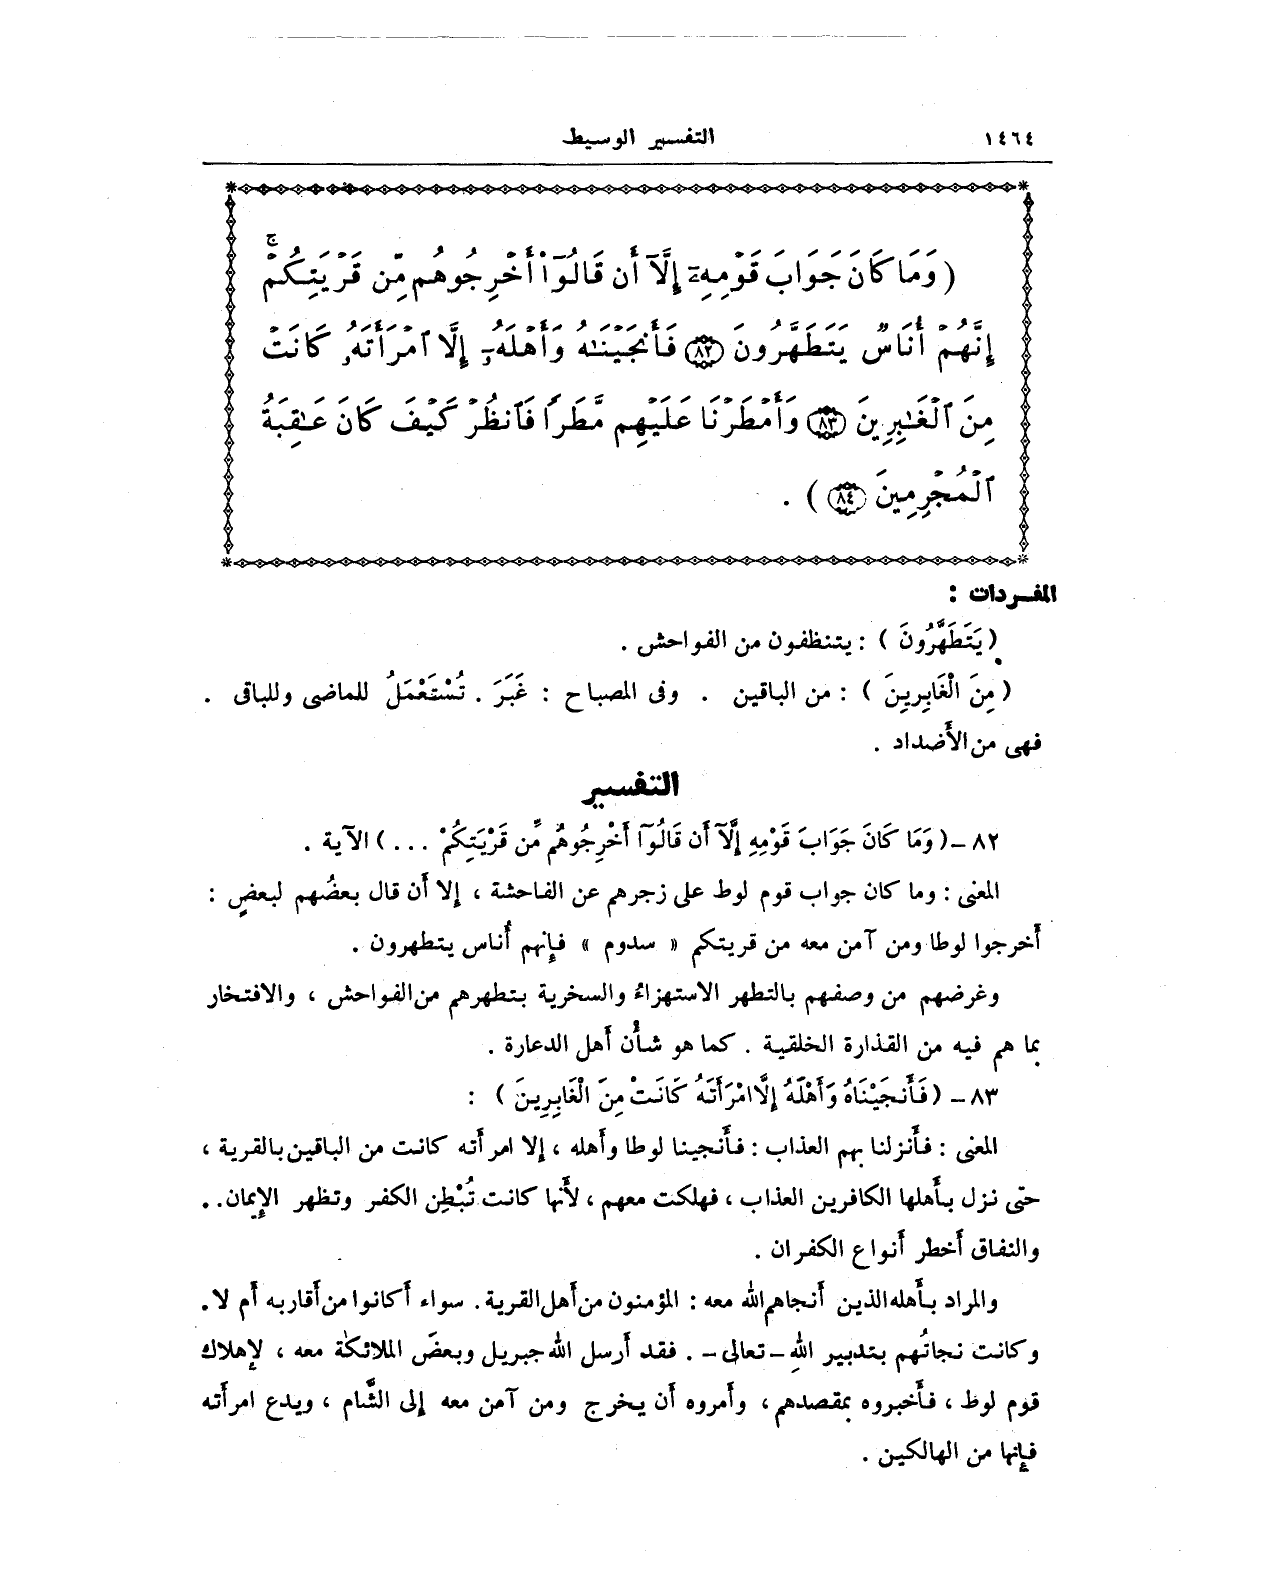 ١٤٦٤ التفسير الوسيط
( وَمَا كَانَ جَوَابَ قَوْمِهِۦٓ إِلَّآ أَن قَالُوٓا۟ أَخْرِجُوهُم مِّن قَرْيَتِكُمْ ۖ
إِنَّهُمْ أُنَاسٌ يَتَطَهَّرُونَ ﴿٨٢﴾ فَأَنجَيْنَٰهُ وَأَهْلَهُۥٓ إِلَّا ٱمْرَأَتَهُۥ كَانَتْ
مِنَ ٱلْغَٰبِرِينَ ﴿٨٣﴾ وَأَمْطَرْنَا عَلَيْهِم مَّطَرًا فَٱنظُرْ كَيْفَ كَانَ عَٰقِبَةُ
ٱلْمُجْرِمِينَ ﴿٨٤﴾ ) .
المفردات :
( يَتَطَهَّرُونَ ) : يتنظفون من الفواحش .
( مِنَ الْغَابِرِينَ ) : من الباقين . وفى المصباح : غَبَرَ . تُسْتَعْمَلُ للماضى وللباقى .
فهى من الأَضداد .
التفسير
٨٢ – ( وَمَا كَانَ جَوَابَ قَوْمِهِ إِلَّآ أَن قَالُوٓا أَخْرِجُوهُم مِّن قَرْيَتِكُمْ ... ) الآية .
المعنى : وما كان جواب قوم لوط على زجرهم عن الفاحشة ، إلا أَن قال بعضُهم لبعضٍ :
أَخرجوا لوطا ومن آمن معه من قريتكم « سدوم » فإنهم أُناس يتطهرون .
وغرضهم من وصفهم بالتطهر الاستهزاءُ والسخرية بتطهرهم من الفواحش ، والافتخار
بما هم فيه من القذارة الخلقية . كما هو شأْن أَهل الدعارة .
٨٣ – ( فَأَنجَيْنَاهُ وَأَهْلَهُ إِلَّا امْرَأَتَهُ كَانَتْ مِنَ الْغَابِرِينَ ) :
المعنى : فأَنزلنا بهم العذاب : فأَنجينا لوطا وأَهله ، إلا امرأَته كانت من الباقين بالقرية ،
حتى نزل بأَهلها الكافرين العذاب ، فهلكت معهم ، لأَنها كانت تُبْطِن الكفر وتظهر الإيمان. .
والنفاق أَخطر أَنواع الكفران .
والمراد بأَهله الذين أَنجاهم الله معه : المؤمنون من أَهل القرية . سواء أَكانوا من أَقاربه أَم لا .
وكانت نجاتُهم بتدبير اللهِ – تعالى – . فقد أَرسل الله جبريل وبعضَ الملائكة معه ، لإهلاك
قوم لوط ، فأَخبروه بمقصدهم ، وأَمروه أَن يخرج ومن آمن معه إلى الشَّام ، ويدع امرأَته
فإنها من الهالكين .